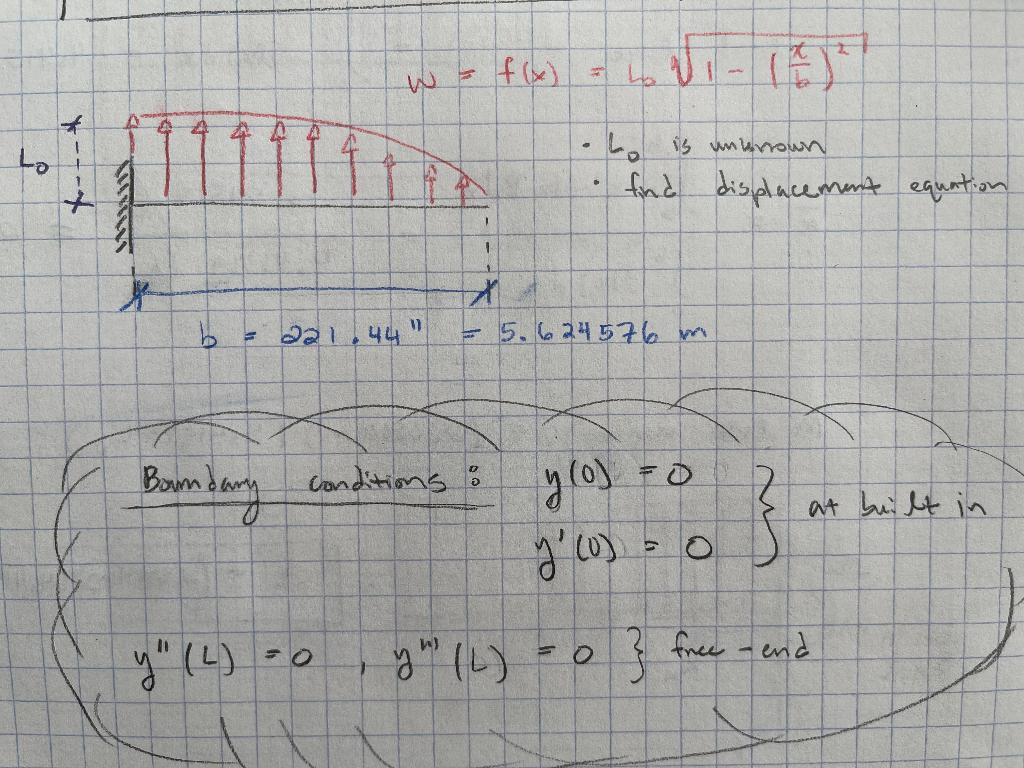 w = f(x) = L₀ √(1 - (x/b)²)
L₀
• L₀ is unknown
• find displacement equation
b = 221.44" = 5.624576 m
Boundary conditions : y(0) = 0
y'(0) = 0 } at built in
y''(L) = 0 , y'''(L) = 0 } free-end